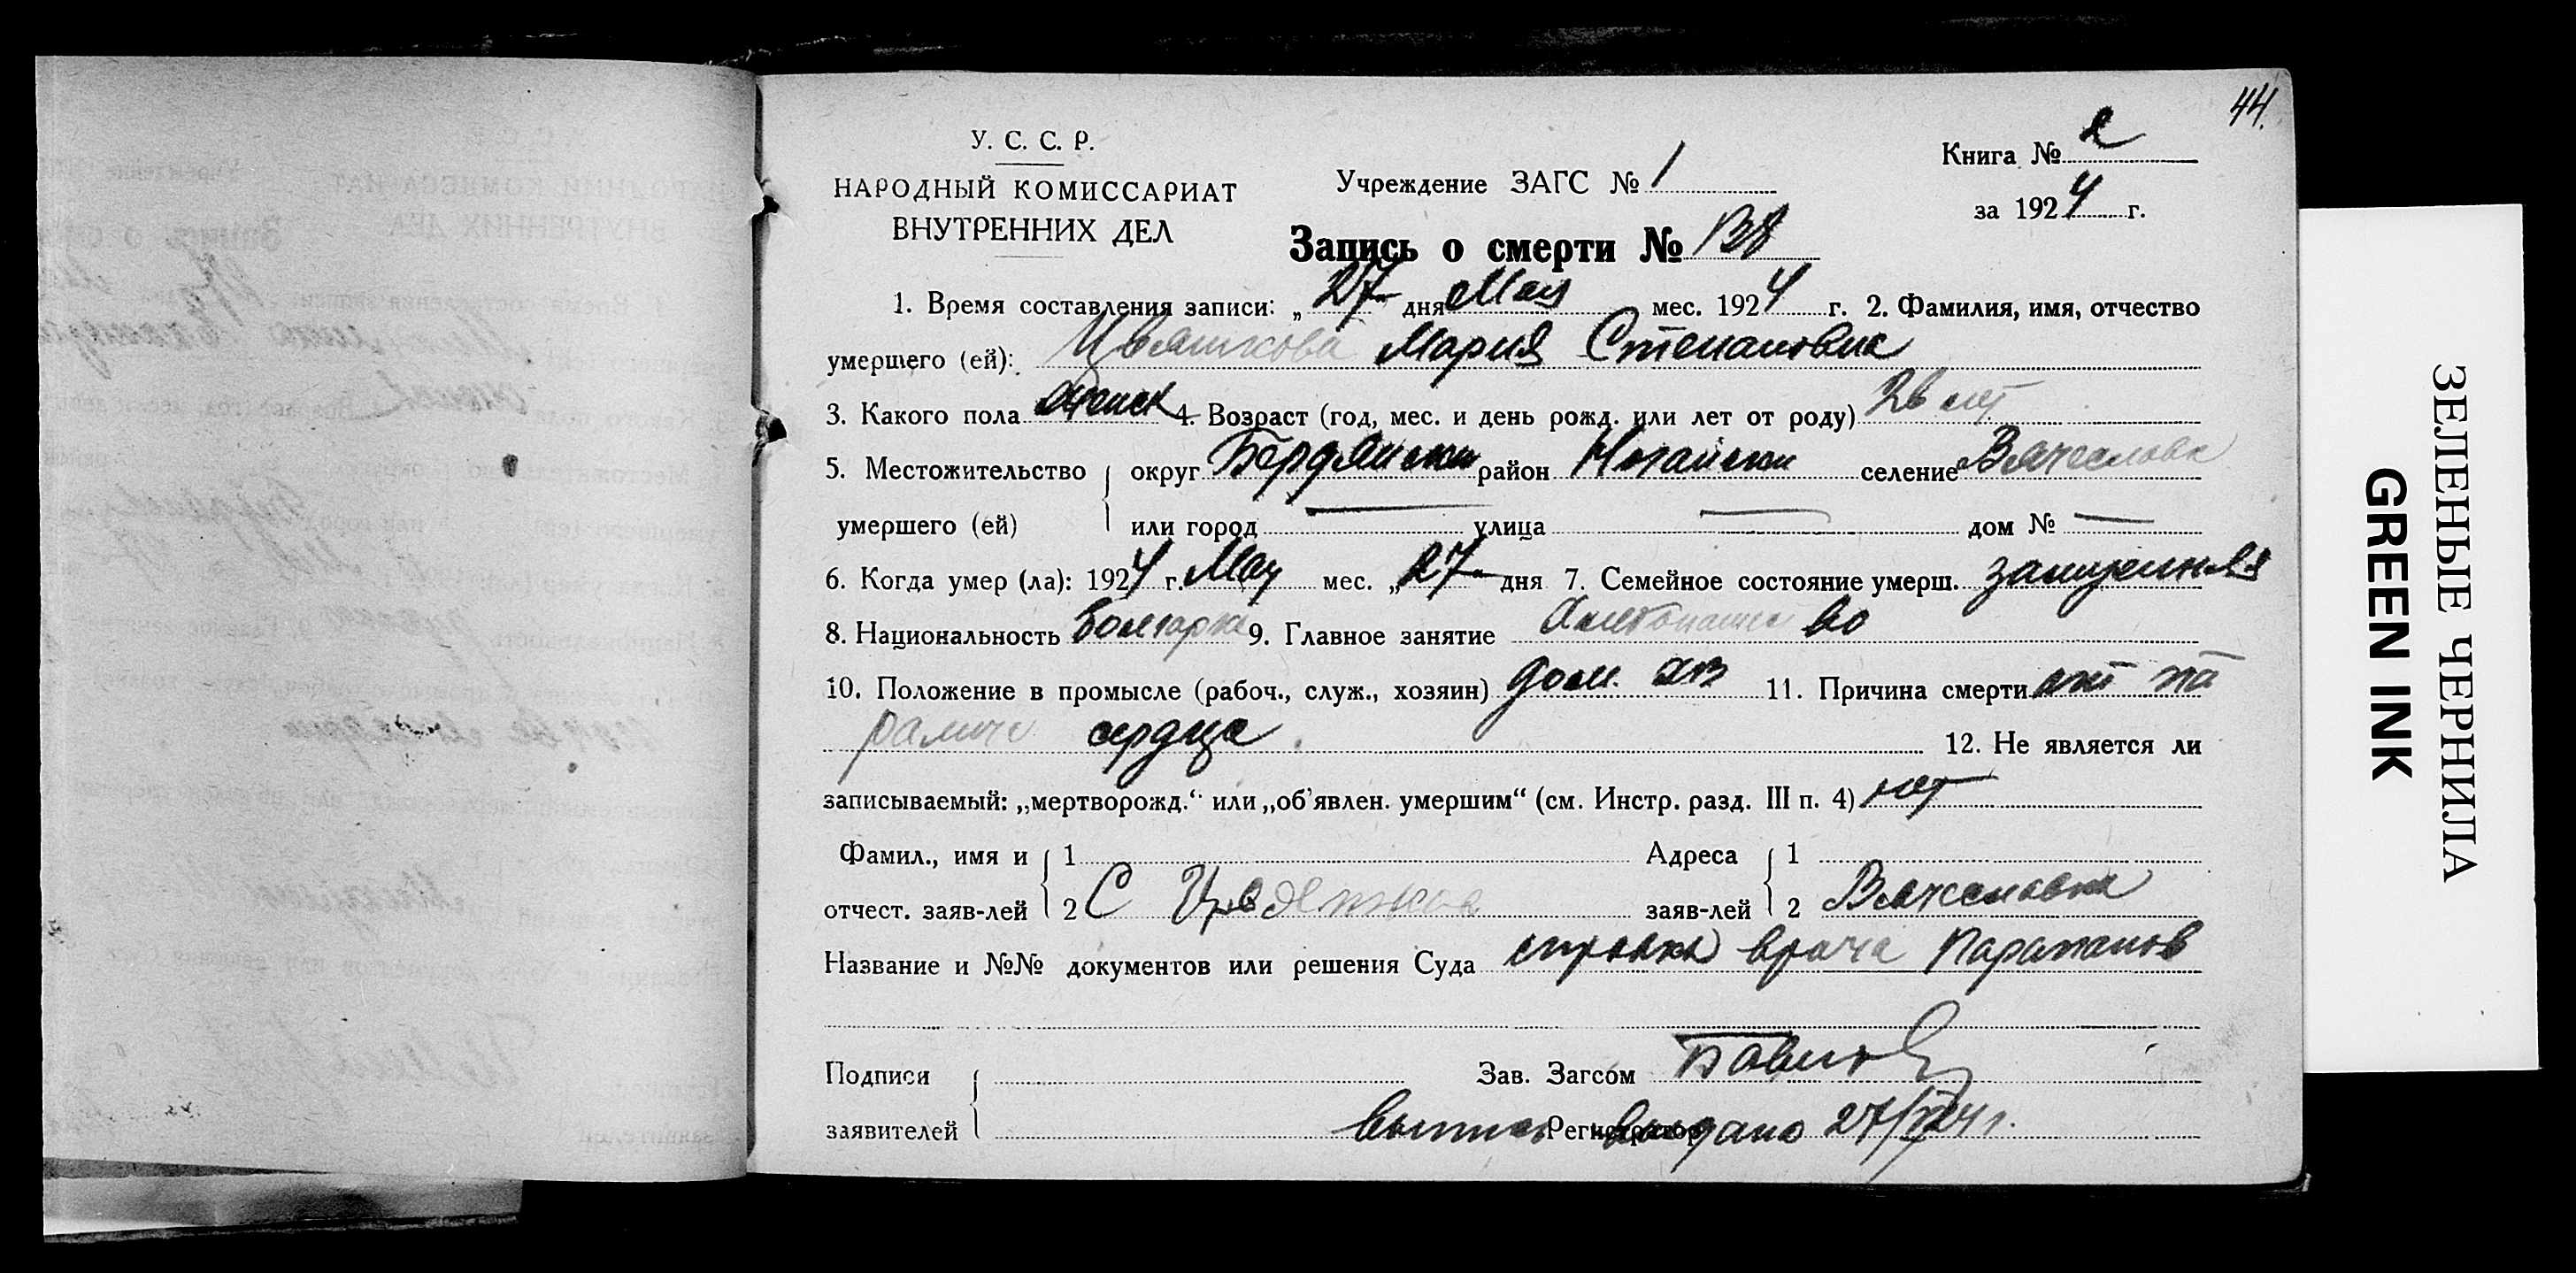 44.
У. С. С. Р.
НАРОДНЫЙ КОМИССАРИАТ
ВНУТРЕННИХ ДЕЛ
Учреждение ЗАГС № 1
Книга № 2
за 1924 г.
Запись о смерти № 138
1. Время составления записи: „27" дня Мая мес. 1924 г. 2. Фамилия, имя, отчество
умершего (ей): Цвяткова Мария Степановна
3. Какого пола женск 4. Возраст (год, мес. и день рожд. или лет от роду) 26 лет
5. Местожительство округ Бердянски район Ногайски селение Вячеславка
умершего (ей) или город — улица — дом № —
6. Когда умер (ла): 1924 г. Мая мес. „27" дня 7. Семейное состояние умерш. замужняя
8. Национальность Болгарка 9. Главное занятие Хлебопашество
10. Положение в промысле (рабоч., служ., хозяин) дом. хоз 11. Причина смерти от па
ралича сердца. 12. Не является ли
записываемый: „мертворожд.“ или „об'явлен. умершим“ (см. Инстр. разд. III п. 4) нет
Фамил., имя и 1 Адреса 1
отчест. заяв-лей 2 С Цвятков заяв-лей 2 Вячеславка
Название и №№ документов или решения Суда справка врача
Подписи Зав. Загсом
заявителей Регистратор
выпись выдана 27/V 24 г.
ЗЕЛЕНЫЕ ЧЕРНИЛА
GREEN INK